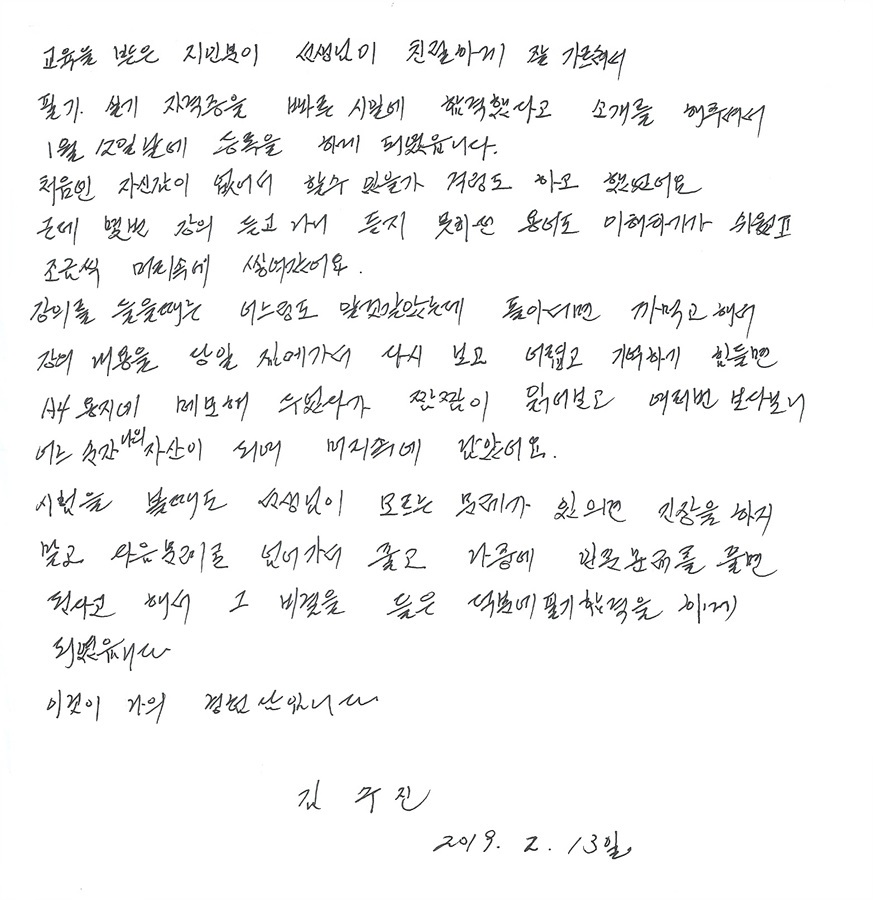 교육을 받은 지인분이 선생님이 친절하게 잘 가르쳐서
필기. 실기 자격증을 빠른 시일에 합격했다고 소개를 해주셔서
1월 12일날에 등록을 하게 되었읍니다.
처음엔 자신감이 없어서 할수 있을가 걱정도 하고 했었어요
근데 몇번 강의 듣고 나니 듣지 못하던 용어도 이해하기가 쉬웠고
조금씩 머리속에 쌓여갔어요.
강의를 들을때는 어느정도 알것같았는데 돌아서면 까먹고 해서
강의 내용을 당일 집에가서 다시 보고 어렵고 기억하기 힘들면
A4 용지에 메모해 두었다가 짬짬이 읽어보고 여러번 보다보니
어느 순간 나의 자산이 되여 머리속에 남았어요.
시험을 볼때도 선생님이 모르는 문제가 있으면 긴장을 하지
말고 다음문제로 넘어가서 풀고 나중에 만든문제를 풀면
된다고 해서 그 비결을 들은 덕분에 필기합격을 하게
되였읍니다
이것이 나의 경험담입니다
김 수진
2019. 2. 13일.